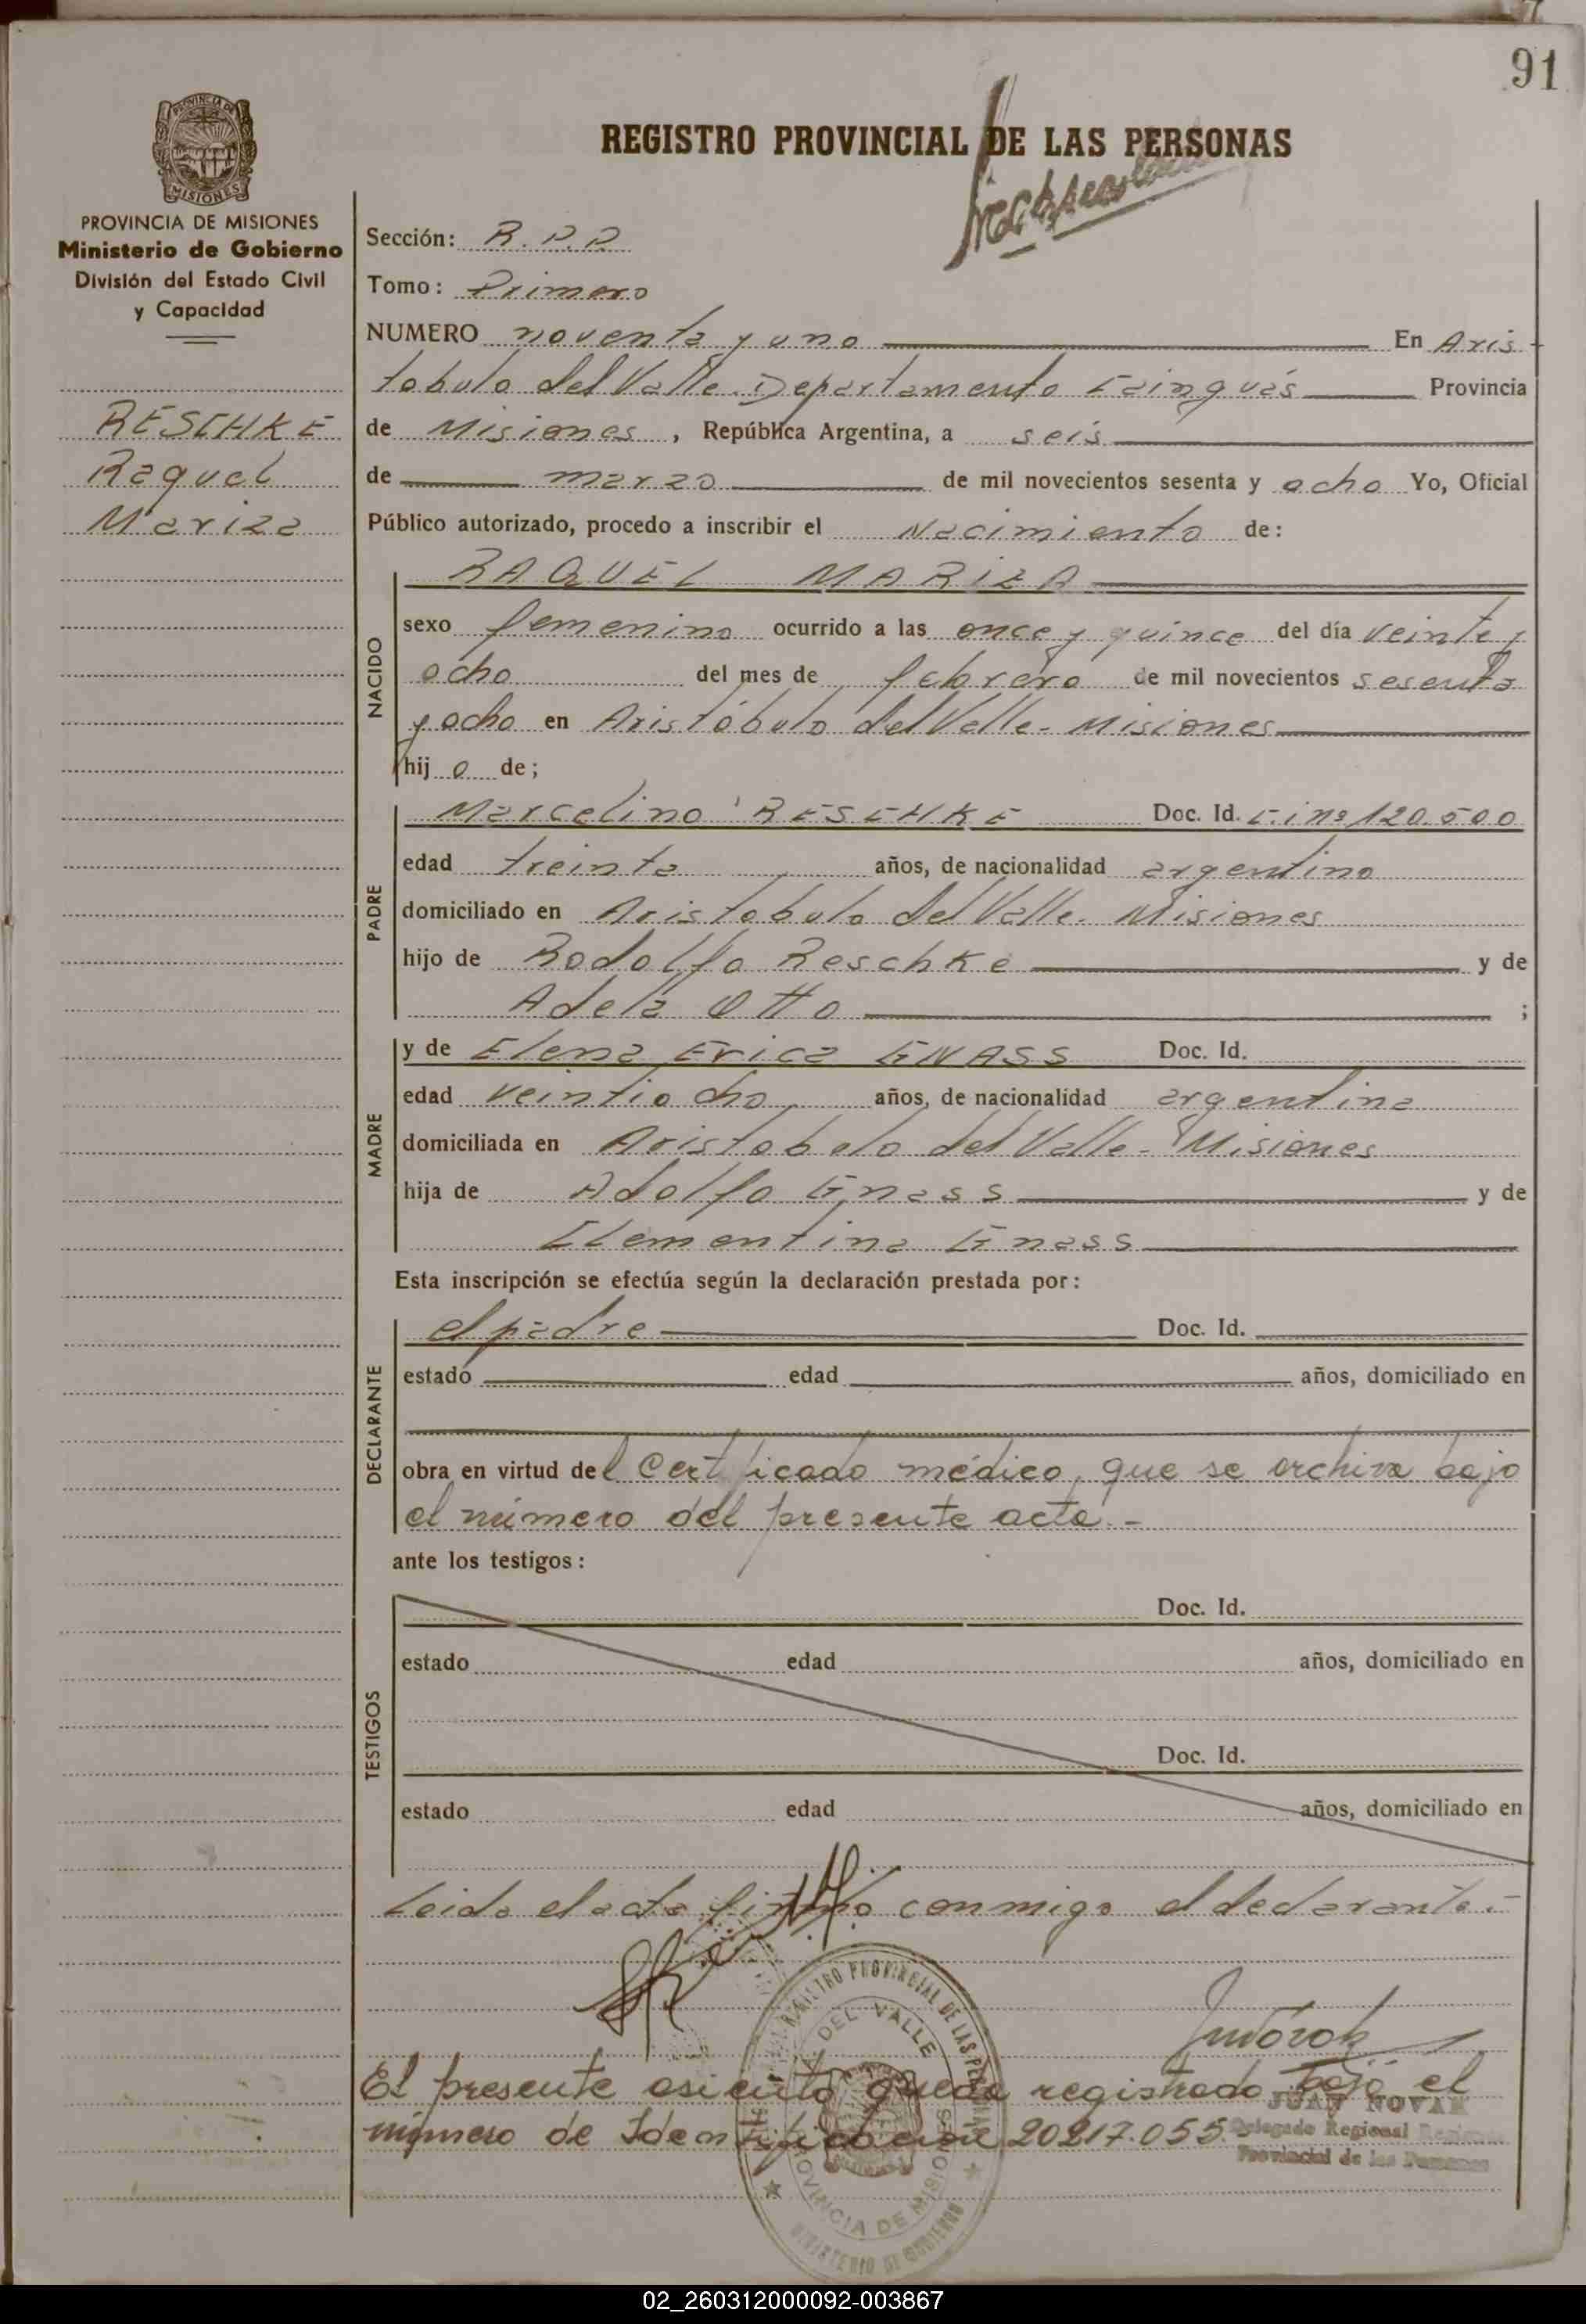 91
REGISTRO PROVINCIAL DE LAS PERSONAS
PROVINCIA DE MISIONES
Ministerio de Gobierno
División del Estado Civil
y Capacidad
RESCHKE
Raquel
Mariza
Sección: R.P.P
Tomo: Primero
NUMERO noventa y uno En Aris-
tobulo del Valle. Departamento Cainguás Provincia
de Misiones, República Argentina, a seis
de marzo de mil novecientos sesenta y ocho Yo, Oficial
Público autorizado, procedo a inscribir el Nacimiento de:
RAQUEL MARIZA
NACIDO
sexo femenino ocurrido a las once y quince del día veinte y
ocho del mes de febrero de mil novecientos sesenta
y ocho en Aristóbulo del Valle - Misiones
hijo de;
PADRE
Marcelino RESCHKE Doc. Id. C.i nº 120.500
edad treinta años, de nacionalidad argentino
domiciliado en Aristobulo del Valle - Misiones
hijo de Rodolfo Reschke y de
Adela Otto ;
MADRE
y de Elena Erica GNASS Doc. Id.
edad veintiocho años, de nacionalidad argentina
domiciliada en Aristobulo del Valle - Misiones
hija de Adolfo Gnass y de
Clementina Gnass
Esta inscripción se efectúa según la declaración prestada por:
DECLARANTE
el padre Doc. Id.
estado edad años, domiciliado en
obra en virtud del Certificado médico, que se archiva bajo
el número del presente acta.-
ante los testigos:
TESTIGOS
Doc. Id.
estado edad años, domiciliado en
Doc. Id.
estado edad años, domiciliado en
Leida el acta firmó conmigo el declarante.-
REGISTRO PROVINCIAL DE LAS PERSONAS
DEL VALLE
PROVINCIA DE MISIONES
MINISTERIO DE GOBIERNO
El presente asiento queda registrado bajo el
número de Identificación 20217.055
JUAN NOVAK
Delegado Regional
Provincial de las Personas
02_260312000092-003867